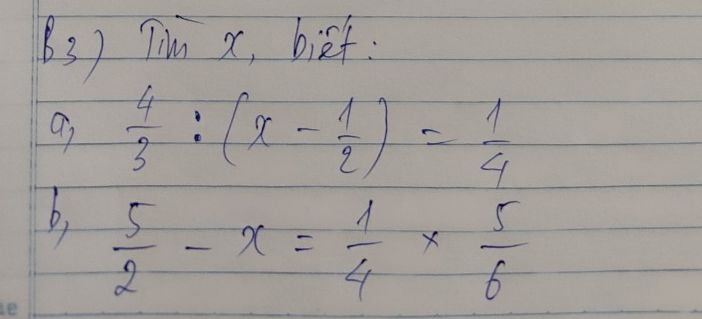 B3) Tìm x, biết:
a, 4/3 : (x - 1/2) = 1/4
b, 5/2 - x = 1/4 × 5/6